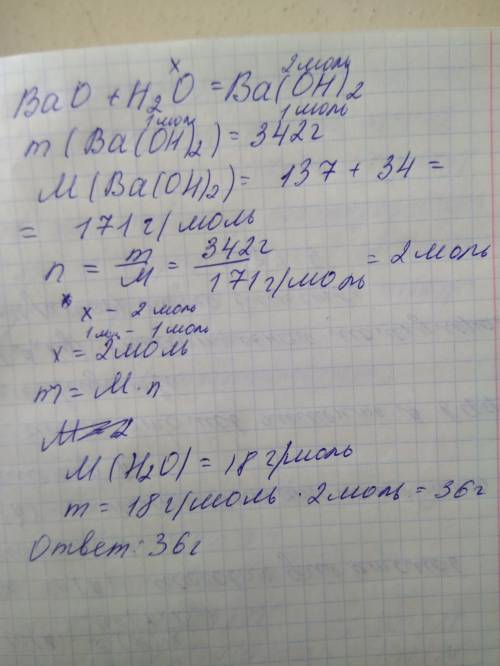 x 2 моль
BaO + H₂O = Ba(OH)₂
1 моль 1 моль
m (Ba(OH)₂) = 342г
M (Ba(OH)₂) = 137 + 34 =
= 171 г/моль
n = m/M = 342г/171г/моль = 2 моль
x x - 2 моль
1 моль - 1 моль
x = 2 моль
m = M · n
M = 2
M (H₂O) = 18 г/моль
m = 18 г/моль · 2 моль = 36 г
Ответ: 36 г